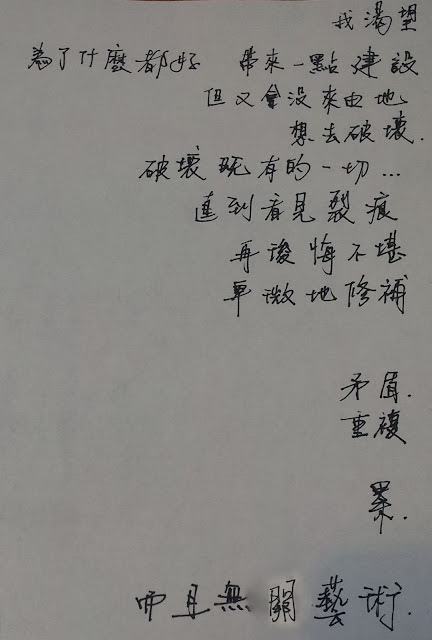 我渴望
為了什麼都好 帶來一點建設
但又會沒來由地
想去破壞.
破壞現有的一切...
直到看見裂痕
再後悔不堪
卑微地修補
矛盾.
重複
累.
而且無關藝術.